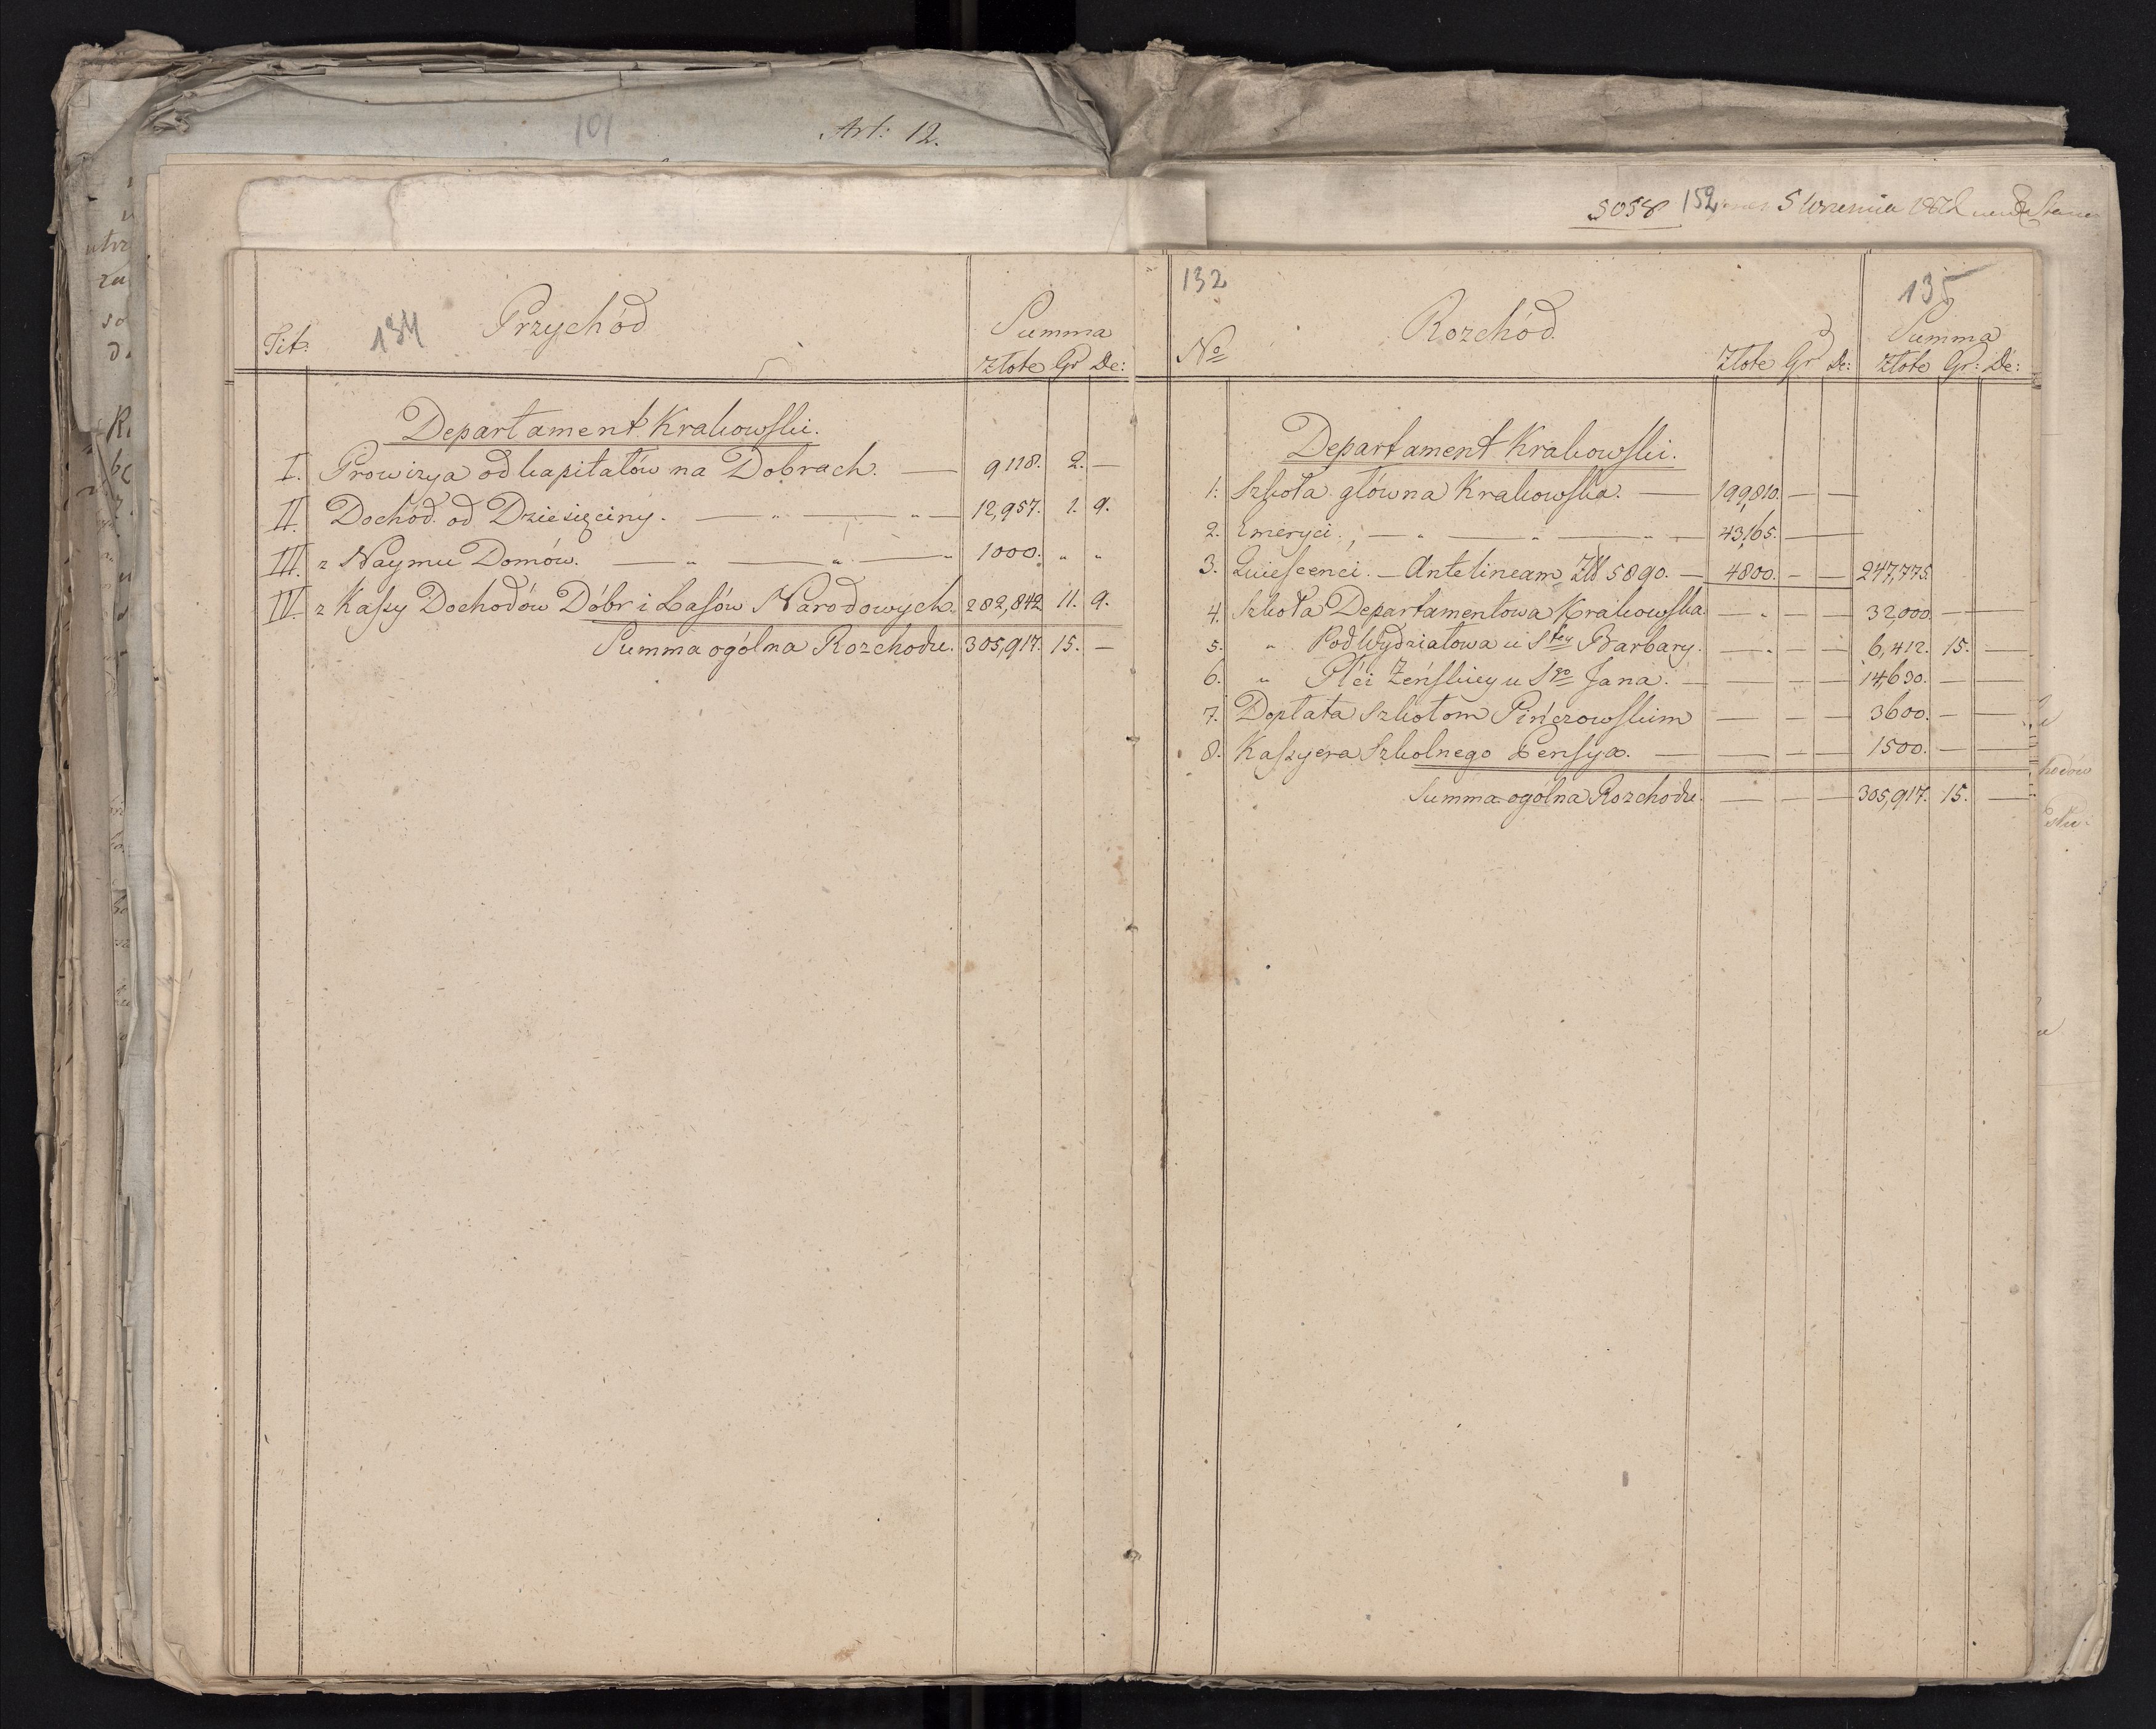 101
Art: 12.
134
Przychód
Summa
Tit:
Złote Gr De:
Departament Krakowski.
I. Prowizya od kapitałów na Dobrach. — 9118. 2. —
II. Dochód od Dziesięciny. — „ — „ — 12,957. 1. 9.
III. z Naymu Domów. — „ — „ — „ 1000. „ „
IV. z Kassy Dochodów Dóbr i Lasów Narodowych. 282,842 11. 9.
Summa ogólna Rozchodu. 305,917. 15. —
5058 152 5 Września
132
135
Rozchód.
Summa
No Złote Gr De: Złote Gr: De:
Departament Krakowski.
1. Szkoła główna Krakowska. — 199,810. — —
2. Emeryci. — „ — „ — „ — 43,165. — —
3. Quiescenci. — Antelineam Złł 5890. — 4800. — — 247,775.
4. Szkoła Departamentowa Krakowska. — „ — — 32,000. — —
5. „ PodWydziałowa u Stey Barbary. — „ — — 6,412. 15. —
6. „ Płci Żeńskiey u Sgo Jana. — — — — 14,630. — —
7. Dopłata Szkołom Pińczowskim — — — 3600. — —
8. Kassyera Szkolnego Pensya. — — — — 1500. — —
Summa ogólna Rozchodu. — — — 305,917. 15. —